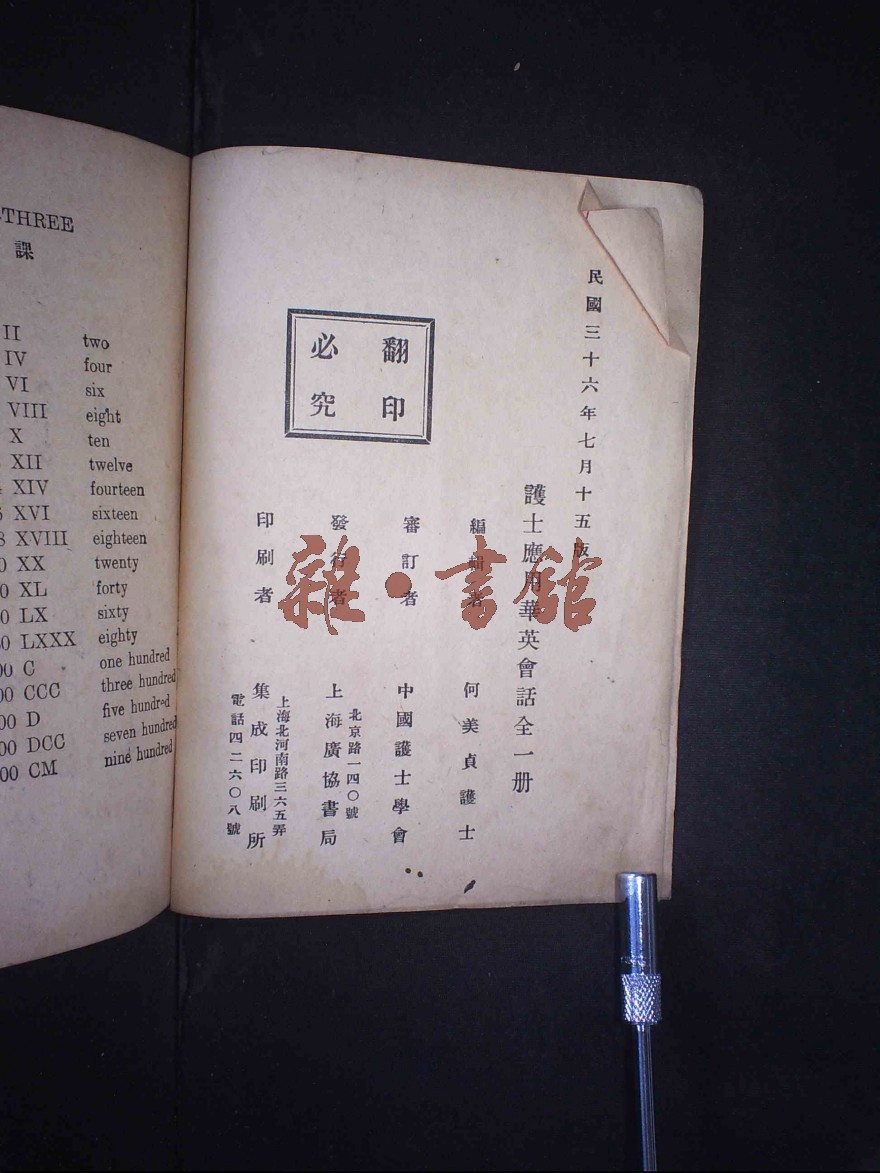 -THREE
課
II two
IV four
VI six
VIII eight
X ten
XII twelve
XIV fourteen
XVI sixteen
XVIII eighteen
XX twenty
XL forty
LX sixty
LXXX eighty
C one hundred
CCC three hundred
D five hundred
DCC seven hundred
CM nine hundred
民國三十六年七月十五版
護士應用華英會話全一册
翻印
必究
編輯者 何美貞護士
審訂者 中國護士學會
發行者 上海廣協書局
北京路一四〇號
印刷者 集成印刷所
上海北河南路三六五弄
電話四二六〇八號
雜·書館